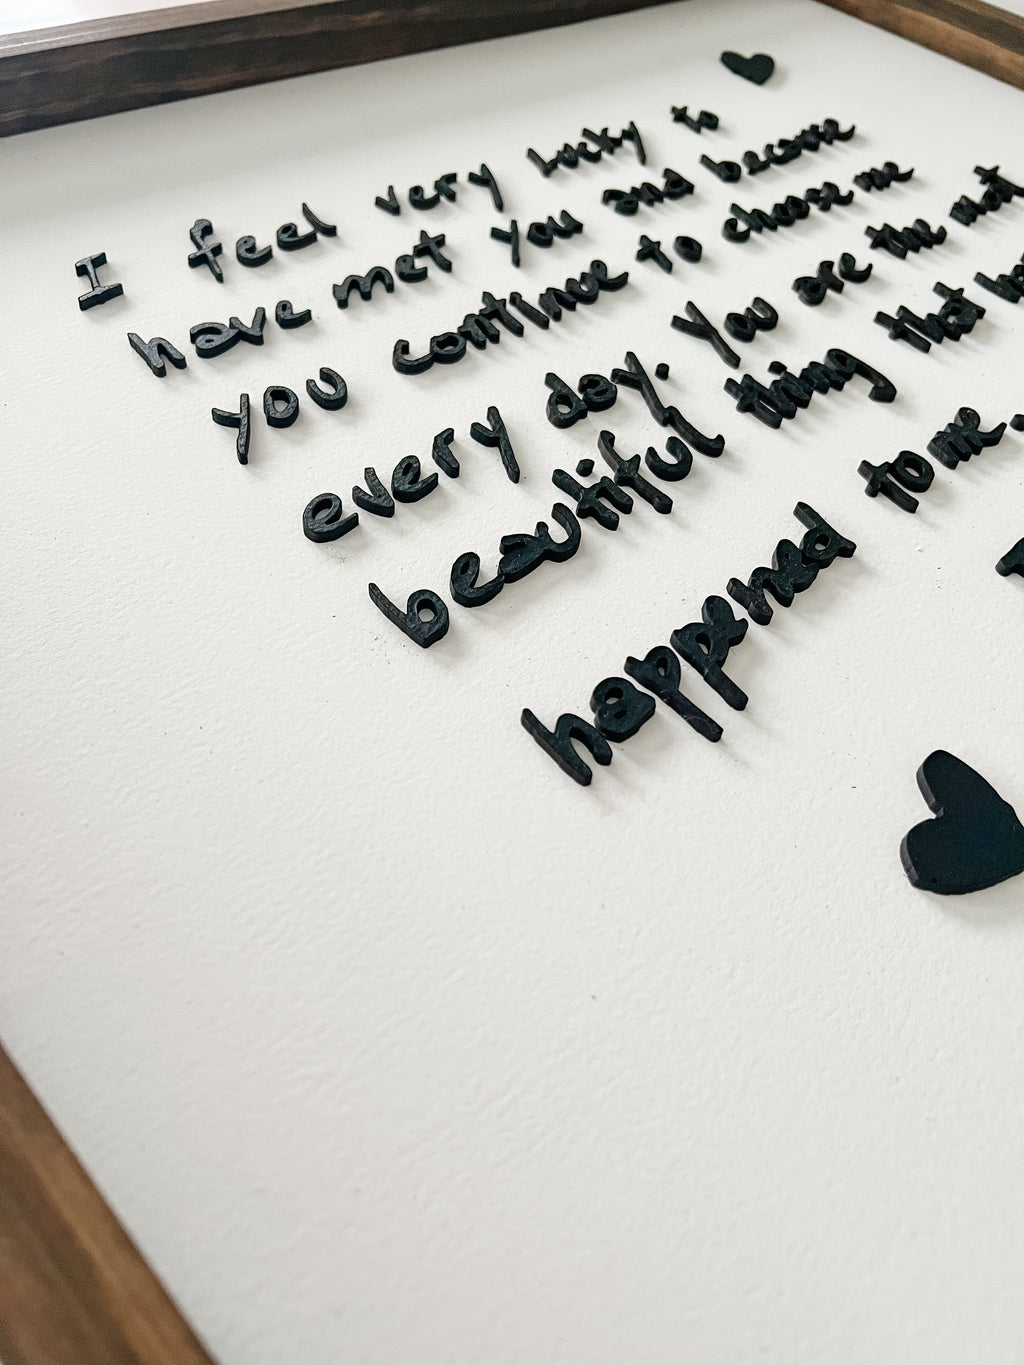 I feel very lucky to
have met you and because
you continue to choose me
every day. You are the most
beautiful thing that
happened to me.